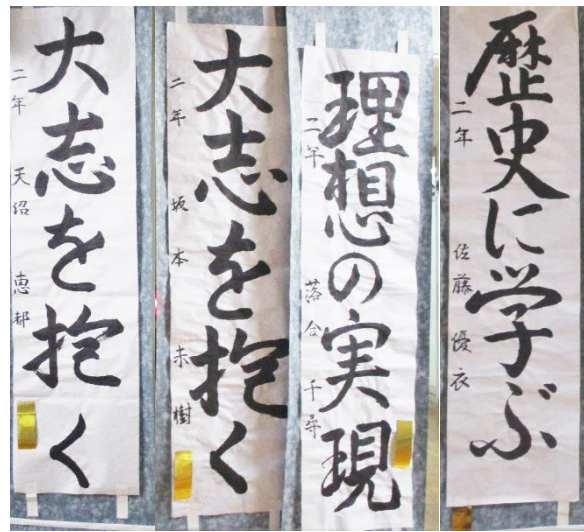 大志を抱く
二年 天沼 恵都
大志を抱く
二年 坂本 未樹
理想の実現
二年 落合 千尋
歴史に学ぶ
二年 佐藤優衣